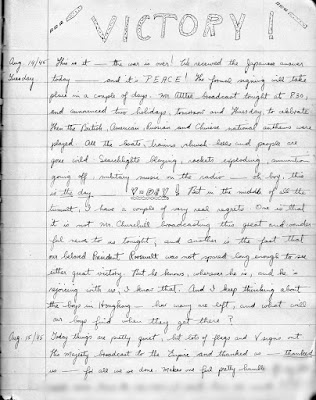 VICTORY!
Aug. 14/45 This is it — the war is over! We received the Japanese answer
Tuesday today — and it's "PEACE"! The formal signing will take
place in a couple of days. Mr Attlee broadcast tonight at 8:30,
and announced two holidays, tomorrow and Thursday, to celebrate
Then the British, American, Russian and Chinese national anthems were
played. All the boats, trains, church bells and people are
gone wild. Searchlights playing, rockets exploding, ammunition
going off, military music on the radio — oh boy, this
is the day But in the middle of all the
tumult, I have a couple of very real regrets. One is that
it is not Mr. Churchill broadcasting this great and wonder-
ful news to us tonight, and another is the fact that
our beloved President Roosevelt was not spared long enough to see
either great victory. But he knows, wherever he is, and he's
rejoicing with us, I know that. And I keep thinking about
the boys in Hongkong — how many are left, and what will
our boys find when they get there?
Aug. 15/45 Today things are pretty quiet, but lots of flags and V signs out
His Majesty broadcast to the Empire and thanked us — thanked
us — for all we've done. Makes me feel pretty humble